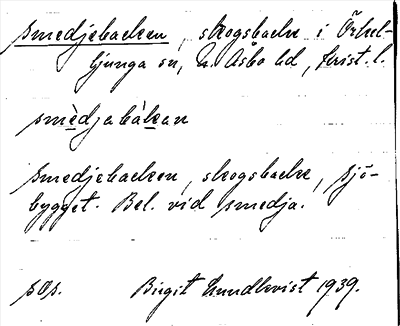 smedjebacken, skogsbacke i Örkel-
ljunga sn, N. Åsbo hd, Krist. l.
smèdjabàkan
smedjebacken, skogsbacke, sjö-
bygget. Bel. vid smedja.
sOp. Birgit Lundkvist 1939.